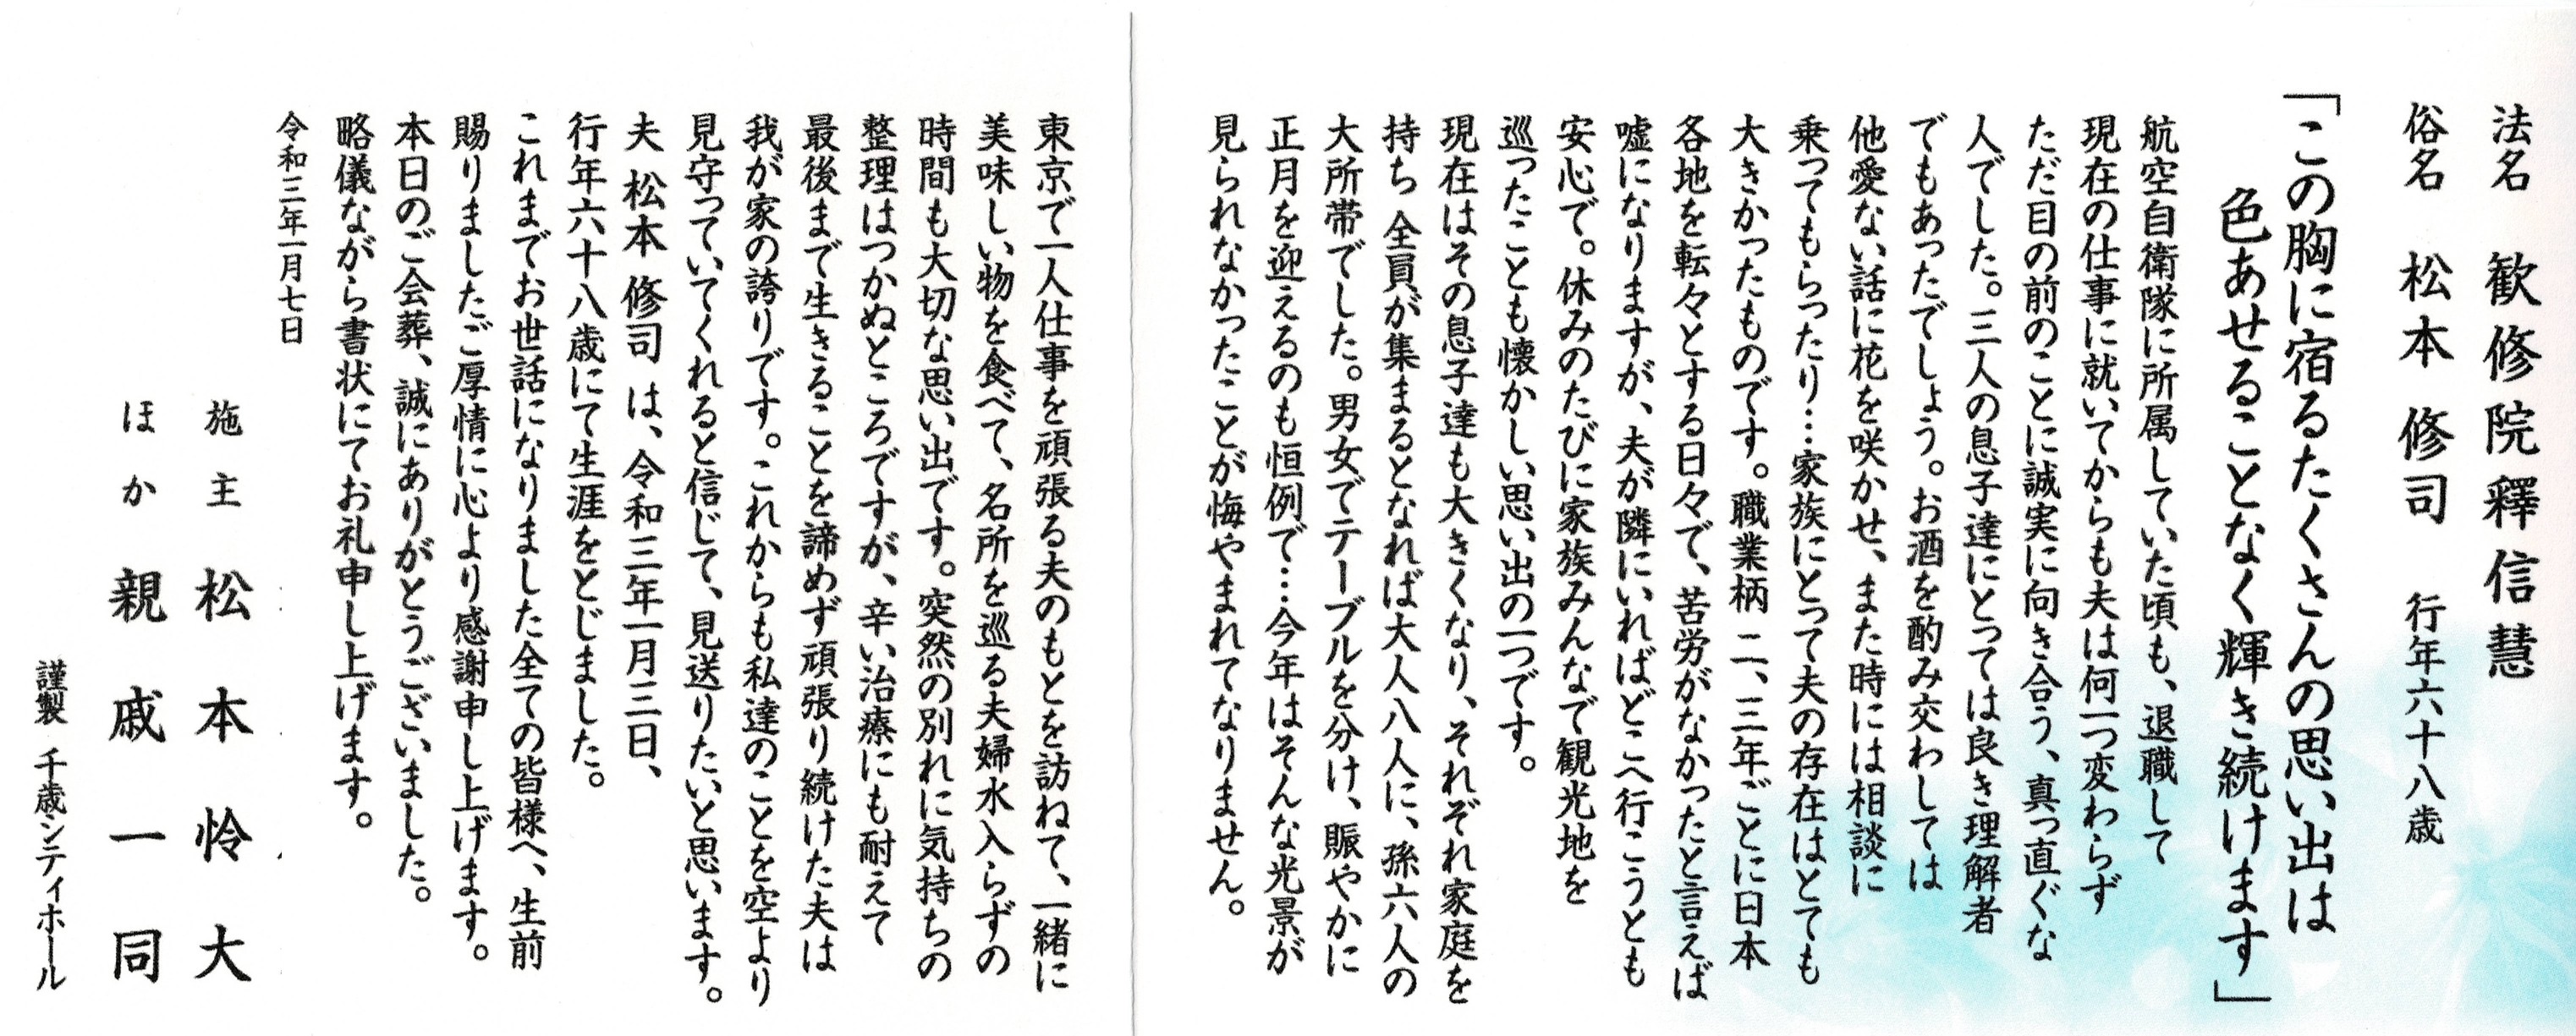 法名　歓修院釋信慧
俗名　松本　修司　行年六十八歳
「この胸に宿るたくさんの思い出は
色あせることなく輝き続けます」
航空自衛隊に所属していた頃も、退職して
現在の仕事に就いてからも夫は何一つ変わらず
ただ目の前のことに誠実に向き合う、真っ直ぐな
人でした。三人の息子達にとっては良き理解者
でもあったでしょう。お酒を酌み交わしては
他愛ない話に花を咲かせ、また時には相談に
乗ってもらったり…家族にとって夫の存在はとても
大きかったものです。職業柄 二、三年ごとに日本
各地を転々とする日々で、苦労がなかったと言えば
嘘になりますが、夫が隣にいればどこへ行こうとも
安心で。休みのたびに家族みんなで観光地を
巡ったことも懐かしい思い出の一つです。
現在はその息子達も大きくなり、それぞれ家庭を
持ち 全員が集まるとなれば大人八人に、孫六人の
大所帯でした。男女でテーブルを分け、賑やかに
正月を迎えるのも恒例で…今年はそんな光景が
見られなかったことが悔やまれてなりません。
東京で一人仕事を頑張る夫のもとを訪ねて、一緒に
美味しい物を食べて、名所を巡る夫婦水入らずの
時間も大切な思い出です。突然の別れに気持ちの
整理はつかぬところですが、辛い治療にも耐えて
最後まで生きることを諦めず頑張り続けた夫は
我が家の誇りです。これからも私達のことを空より
見守っていてくれると信じて、見送りたいと思います。
夫 松本 修司 は、令和三年一月三日、
行年六十八歳にて生涯をとじました。
これまでお世話になりました全ての皆様へ、生前
賜りましたご厚情に心より感謝申し上げます。
本日のご会葬、誠にありがとうございました。
略儀ながら書状にてお礼申し上げます。
令和三年一月七日
施主　松本怜大
ほか　親戚一同
謹製　千歳シティホール